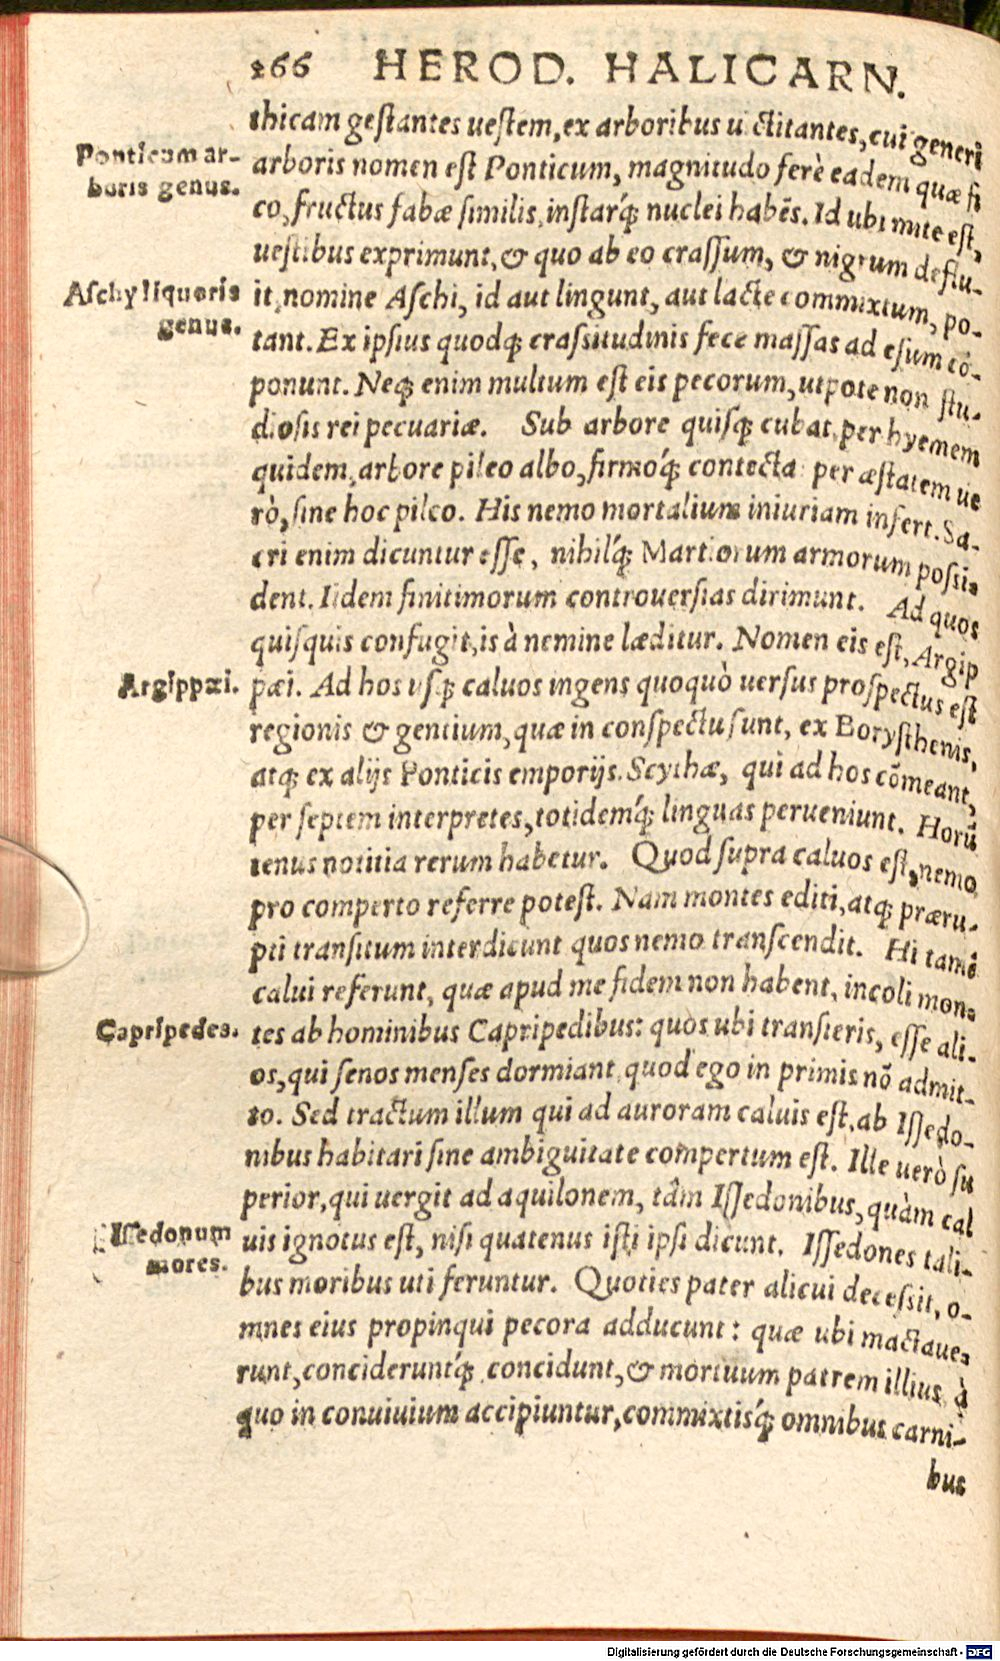 266 HEROD. HALICARN.
thicam geſtantes ueſtem, ex arboribus uictitantes, cui generi
Ponticum ar-
boris genus.
arboris nomen eſt Ponticum, magnitudo ferè eadem quæ fi
co, fructus fabæ ſimilis, inſtarq́; nuclei habẽs. Id ubi mite eſt,
ueſtibus exprimunt, & quo ab eo craſſum, & nigrum deflu-
Aſchy liquoris
genus.
it, nomine Aſchi, id aut lingunt, aut lacte commixtum, po-
tant. Ex ipſius quoq; craſsitudinis fece maſſas ad eſum cõ-
ponunt. Neq; enim multum eſt eis pecorum, utpote non ſtu-
dioſis rei pecuariæ. Sub arbore quiſq; cubat, per hyemem
quidem, arbore pileo albo, firmoq́; contecta: per æſtatem ue
rò, ſine hoc pileo. His nemo mortalium iniuriam infert. Sa-
cri enim dicuntur eſſe, nihilq́; Martiorum armorum poſsi-
dent. Iidem finitimorum controuerſias dirimunt. Ad quos
quiſquis confugit, is à nemine læditur. Nomen eis eſt, Argip
Argippæi.
pæi. Ad hos uſq; caluos ingens quoquò uerſus proſpectus eſt
regionis & gentium, quæ in conſpectu ſunt, ex Boryſthenis,
atq; ex alijs Ponticis emporijs. Scythæ, qui ad hos cõmeant,
per ſeptem interpretes, totidemq́; linguas perueniunt. Horũ
tenus notitia rerum habetur. Quod ſupra caluos eſt, nemo
pro comperto referre poteſt. Nam montes editi, atq; præru-
pti tranſitum interdicunt quos nemo tranſcendit. Hi tamẽ
calui referunt, quæ apud me fidem non habent, incoli mon-
Capripedes.
tes ab hominibus Capripedibus: quos ubi tranſieris, eſſe ali-
os, qui ſenos menſes dormiant, quod ego in primis nõ admit-
to. Sed tractum illum qui ad auroram caluis eſt, ab Iſſedo-
nibus habitari ſine ambiguitate compertum eſt. Ille uerò ſu
perior, qui uergit ad aquilonem, tàm Iſſedonibus, quàm cal
Iſſedonum
mores.
uis ignotus eſt, niſi quatenus iſti ipſi dicunt. Iſſedones tali-
bus moribus uti feruntur. Quoties pater alicui deceſsit, o-
mnes eius propinqui pecora adducunt: quæ ubi mactaue-
runt, concideruntq́; concidunt, & mortuum patrem illius, à
quo in conuiuium accipiuntur, commixtisq́; omnibus carni-
bus
Digitalisierung gefördert durch die Deutsche Forschungsgemeinschaft - DFG